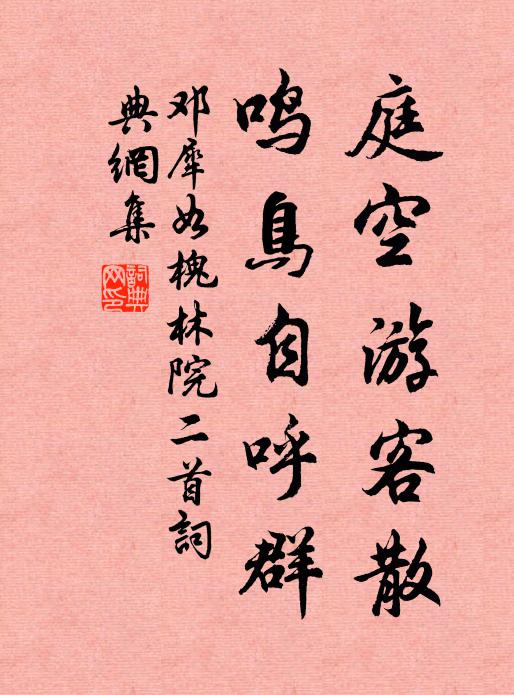 庭空游客散
鸣鳥自呼群
邓犀如槐林院二首詞
典網集
詞典
网印